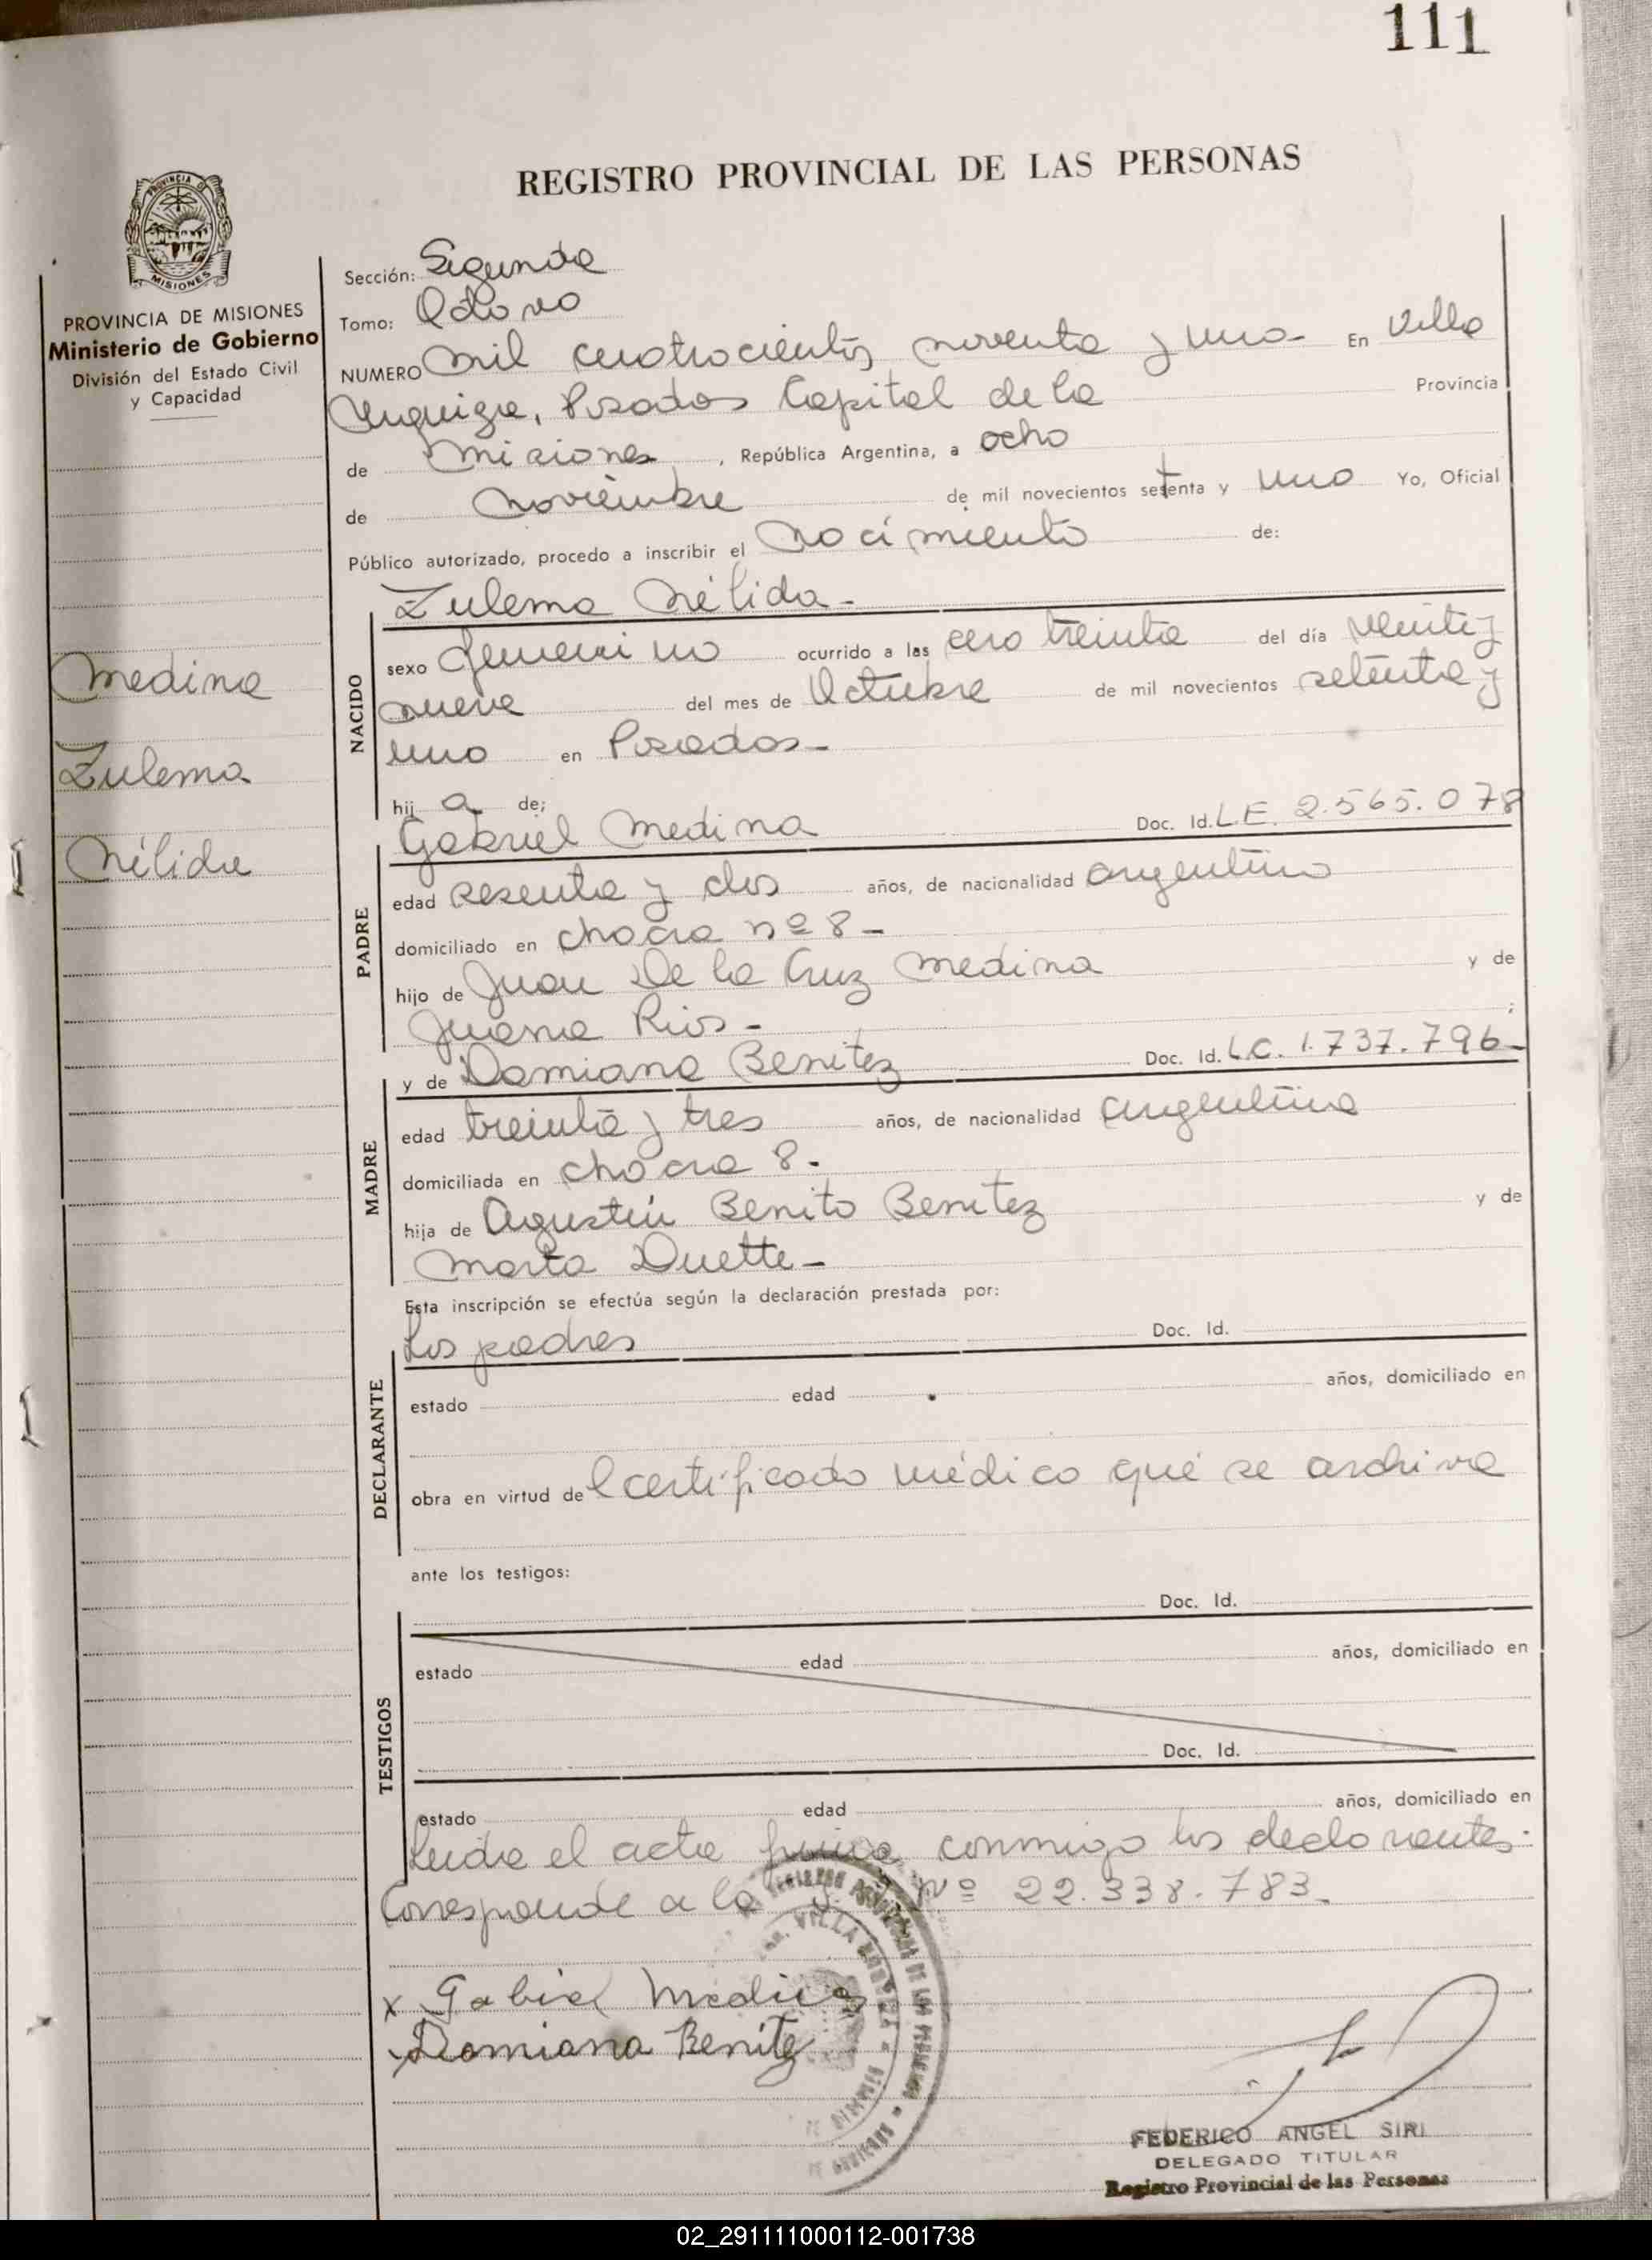 111
REGISTRO PROVINCIAL DE LAS PERSONAS
PROVINCIA DE MISIONES
Ministerio de Gobierno
División del Estado Civil
y Capacidad
Medina
Zulema
Nélida
Sección: Segunda
Tomo: Octavo
NUMERO Mil cuatrocientos noventa y uno- En Villa
Urquiza, Posadas Capital de la Provincia
de Misiones, República Argentina, a ocho
de Noviembre de mil novecientos setenta y uno Yo, Oficial
Público autorizado, procedo a inscribir el Nacimiento de:
Zulema Nélida-
NACIDO
sexo femenino ocurrido a las cero treinta del día veinti y
nueve del mes de Octubre de mil novecientos setenta y
uno en Posadas-
hij a de:
Gabriel Medina Doc. Id. L.E. 2.565.078
PADRE
edad sesenta y dos años, de nacionalidad argentino
domiciliado en chacra nº 8-
hijo de Juan De la Cruz Medina y de
Juana Rios-
y de Damiana Benitez Doc. Id. L.C. 1.737.796-
MADRE
edad treinta y tres años, de nacionalidad argentina
domiciliada en chacra 8-
hija de Agustín Benito Benitez y de
Marta Duette-
Esta inscripción se efectúa según la declaración prestada por:
Los padres Doc. Id.
DECLARANTE
estado edad años, domiciliado en
obra en virtud del certificado médico qué se archiva
ante los testigos:
Doc. Id.
TESTIGOS
estado edad años, domiciliado en
Doc. Id.
estado edad años, domiciliado en
Leida el acta firma conmigo los declarantes.
Corresponde a la Nº 22.338.783-
x Gabriel Medina
x Damiana Benitez
FEDERICO ANGEL SIRI
DELEGADO TITULAR
Registro Provincial de las Personas
02_291111000112-001738